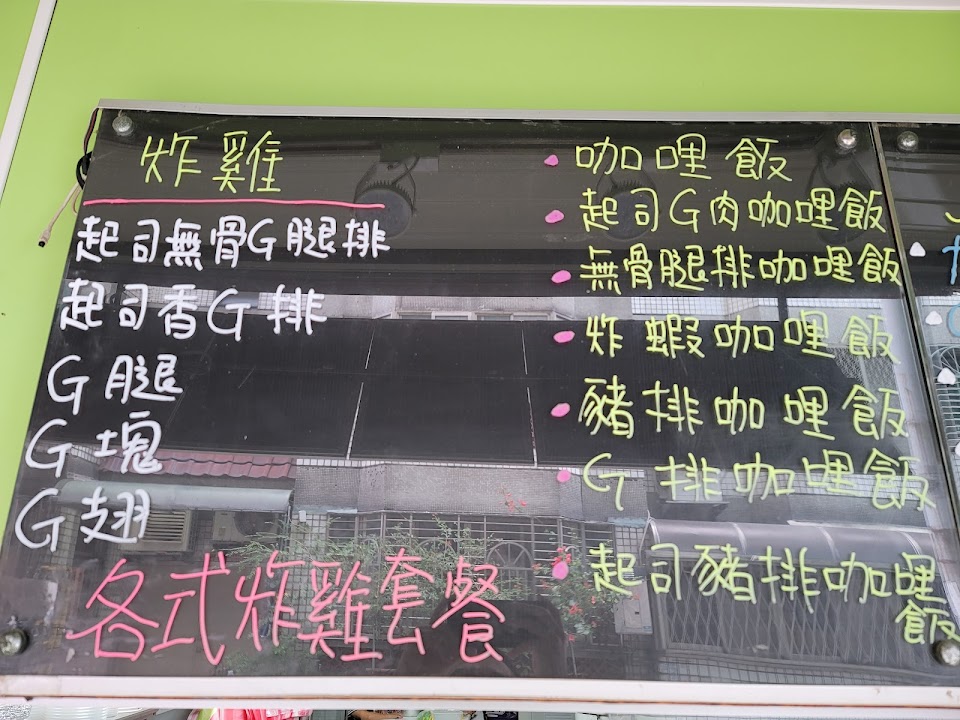 炸雞
起司無骨G腿排
起司香G排
G腿
G塊
G翅
各式炸雞套餐
咖哩飯
起司G肉咖哩飯
無骨腿排咖哩飯
炸蝦咖哩飯
豬排咖哩飯
G排咖哩飯
起司豬排咖哩
飯